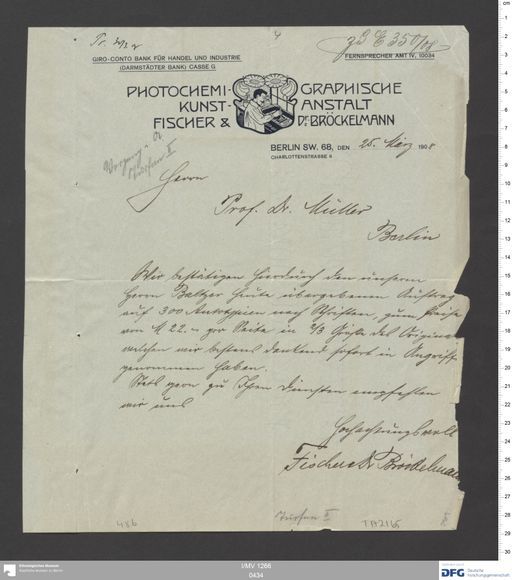 GIRO-CONTO BANK FÜR HANDEL UND INDUSTRIE
(DARMSTÄDTER BANK) CASSE G
FERNSPRECHER AMT IV, 10034
PHOTOCHEMI- GRAPHISCHE
KUNST- ANSTALT
FISCHER & Dr. BRÖCKELMANN
BERLIN SW. 68, DEN 25. März 1908
CHARLOTTENSTRASSE
Herrn
Prof. Dr. Müller
Berlin
Wir bestätigen hierdurch den unserm
Herrn Baltzer heute übergebenen Auftrag
auf 300 Autotypien nach Schriften, zum Preise
von M 22.- pro Seite in 2/3 Größe des Originals
welchen wir bestens dankend sofort in Angriff
genommen haben.
Stets gern zu Ihren Diensten empfehlen
wir uns
Hochachtungsvoll
Fischer & Dr Bröckelmann
Turfan II
TA 2165
Ethnologisches Museum
Staatliche Museen zu Berlin
I/MV 1266
0434
gefördert durch
DFG Deutsche
Forschungsgemeinschaft